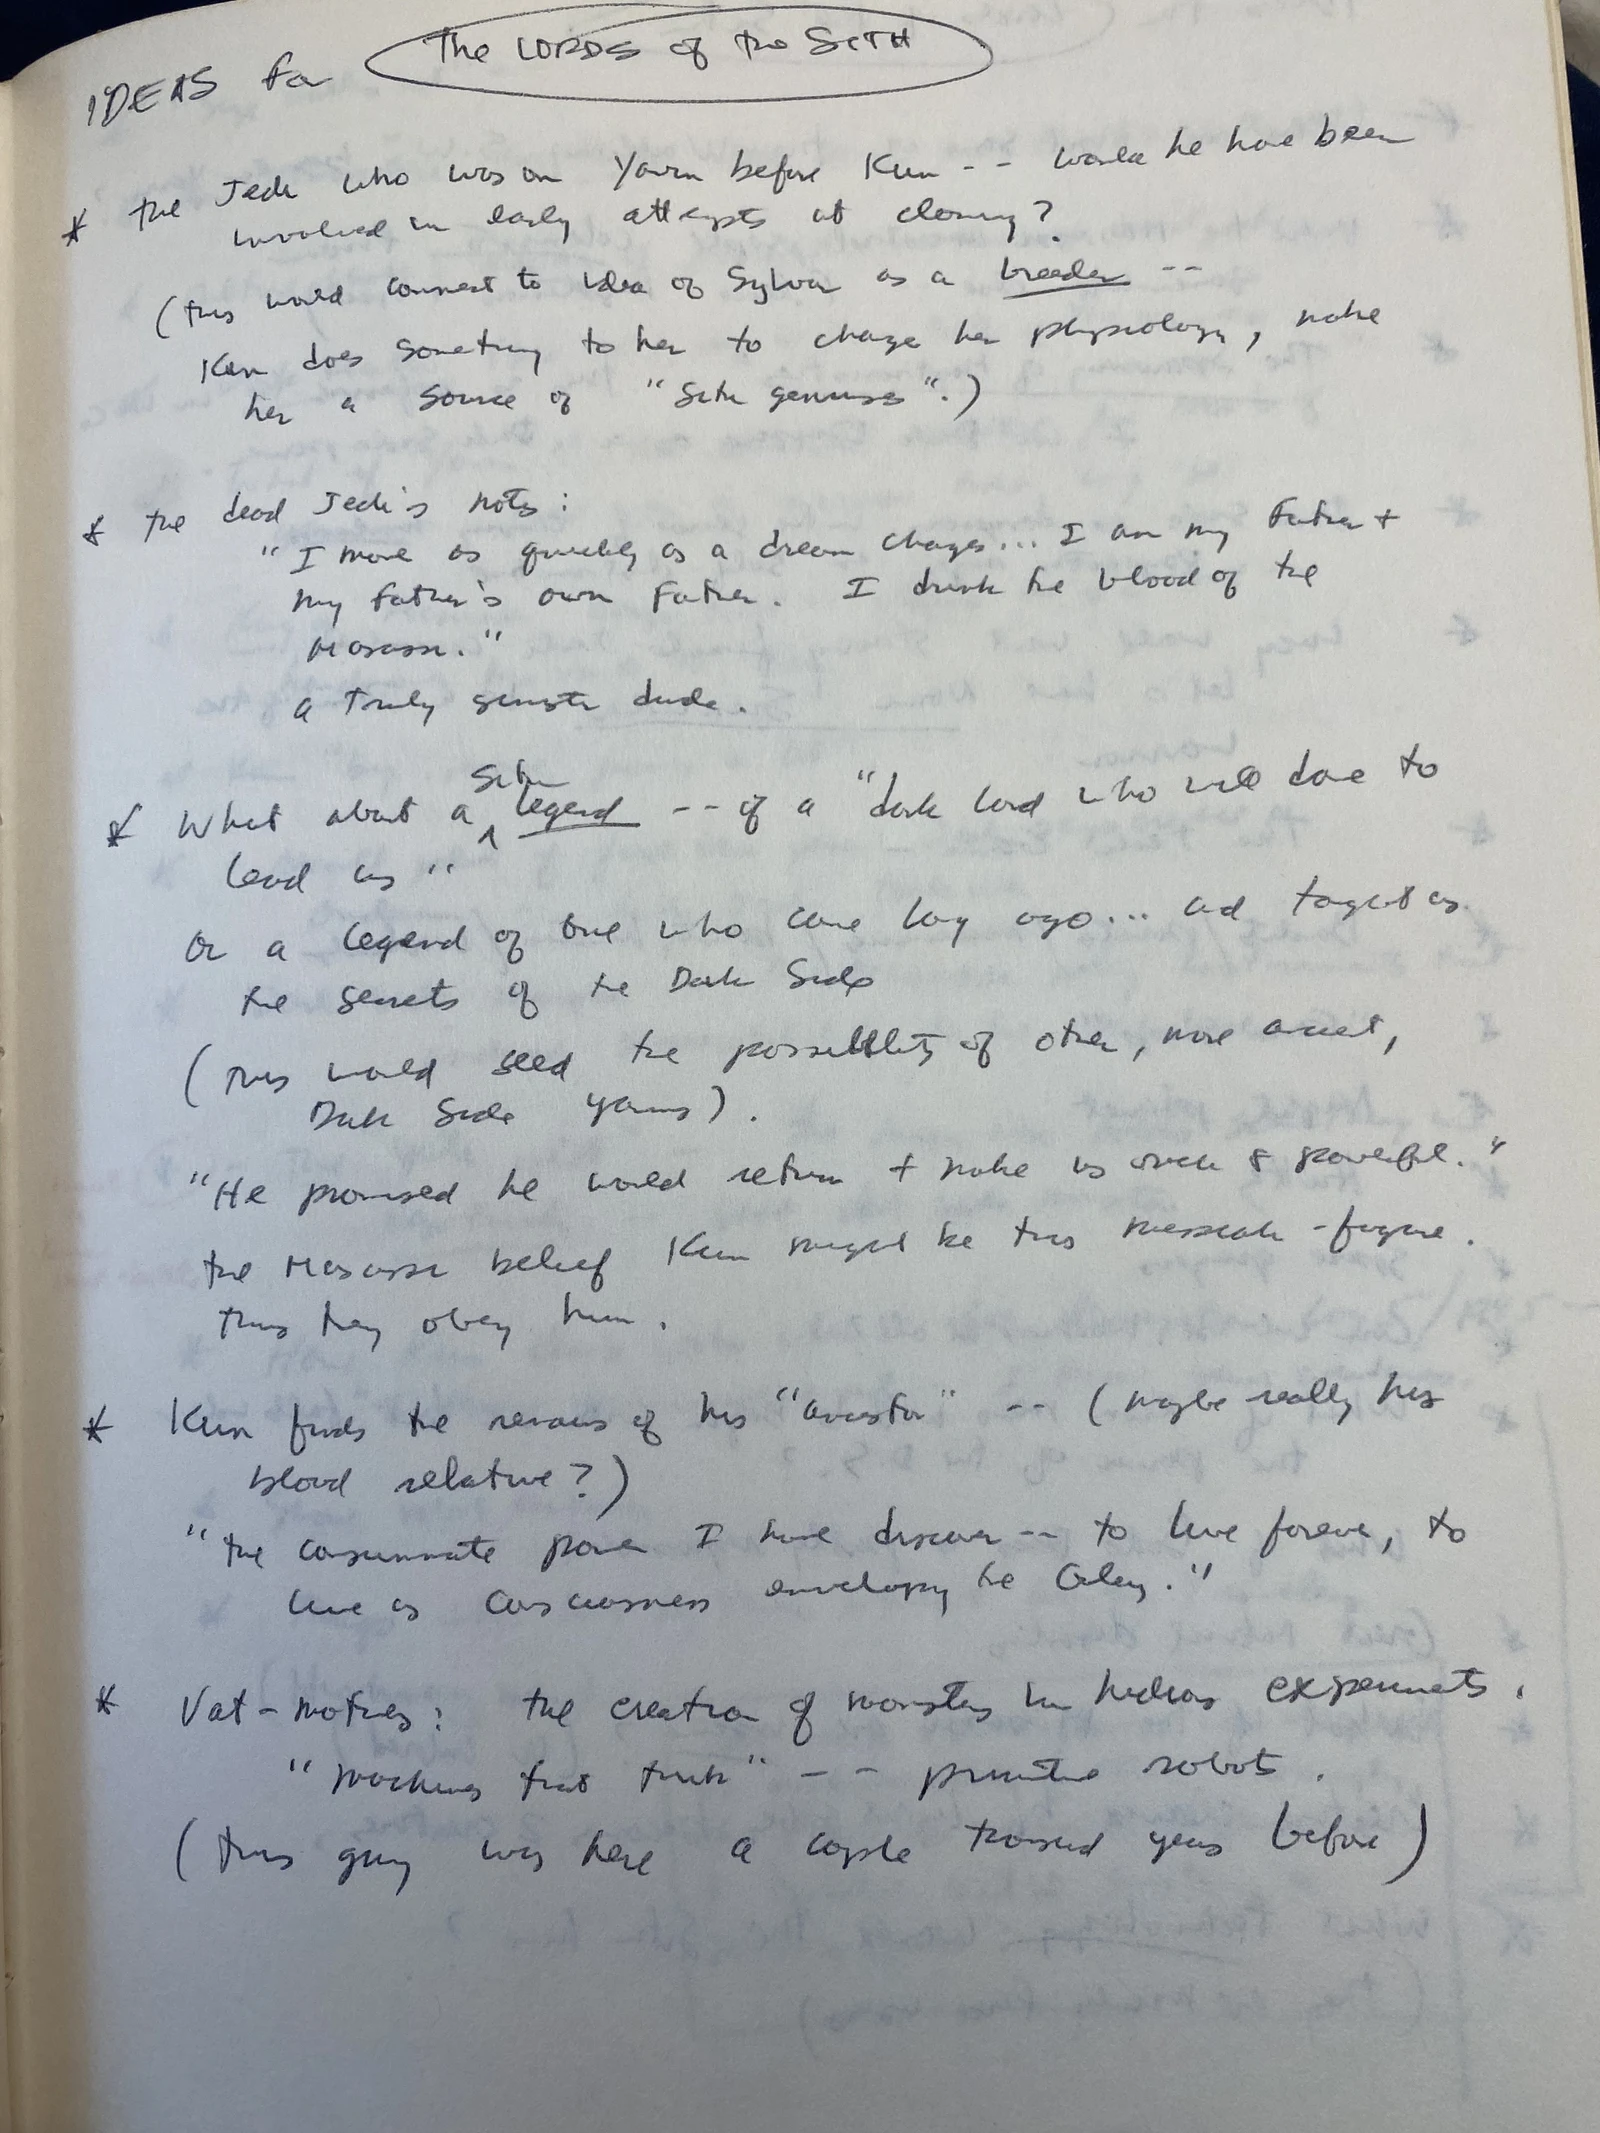 IDEAS for The LORDS of the SITH
* the Jedi who was on Yavin before Kun -- would he have been
involved in early attempts at cloning?
(this would connect to idea of Sylvar as a breeder --
Kun does something to her to change her physiology, make
her a source of "Sith geniuses".)
* the dead Jedi's notes:
"I move as quickly as a dream changes... I am my Father +
my father's own Father. I drink the blood of the
Massassi."
a truly sinister dude.
* What about a Sith legend -- of a "dark lord who will come to
lead us"
Or a legend of one who came long ago... and taught us
the secrets of the Dark Side
(this would seed the possibility of other, more ancient,
Dark Side yarns).
"He promised he would return + make us rich & powerful."
the Massassi belief Kun might be this messiah-figure.
thus they obey him.
* Kun finds the remains of his "ancestor" -- (maybe really his
blood relative?)
"the consummate power I have discover -- to live forever, to
live as consciousness enveloping the Galaxy."
* Vat-mothers: the creation of monsters in hideous experiments.
"machines that think" -- primitive robots.
(this guy was here a couple thousand years before)